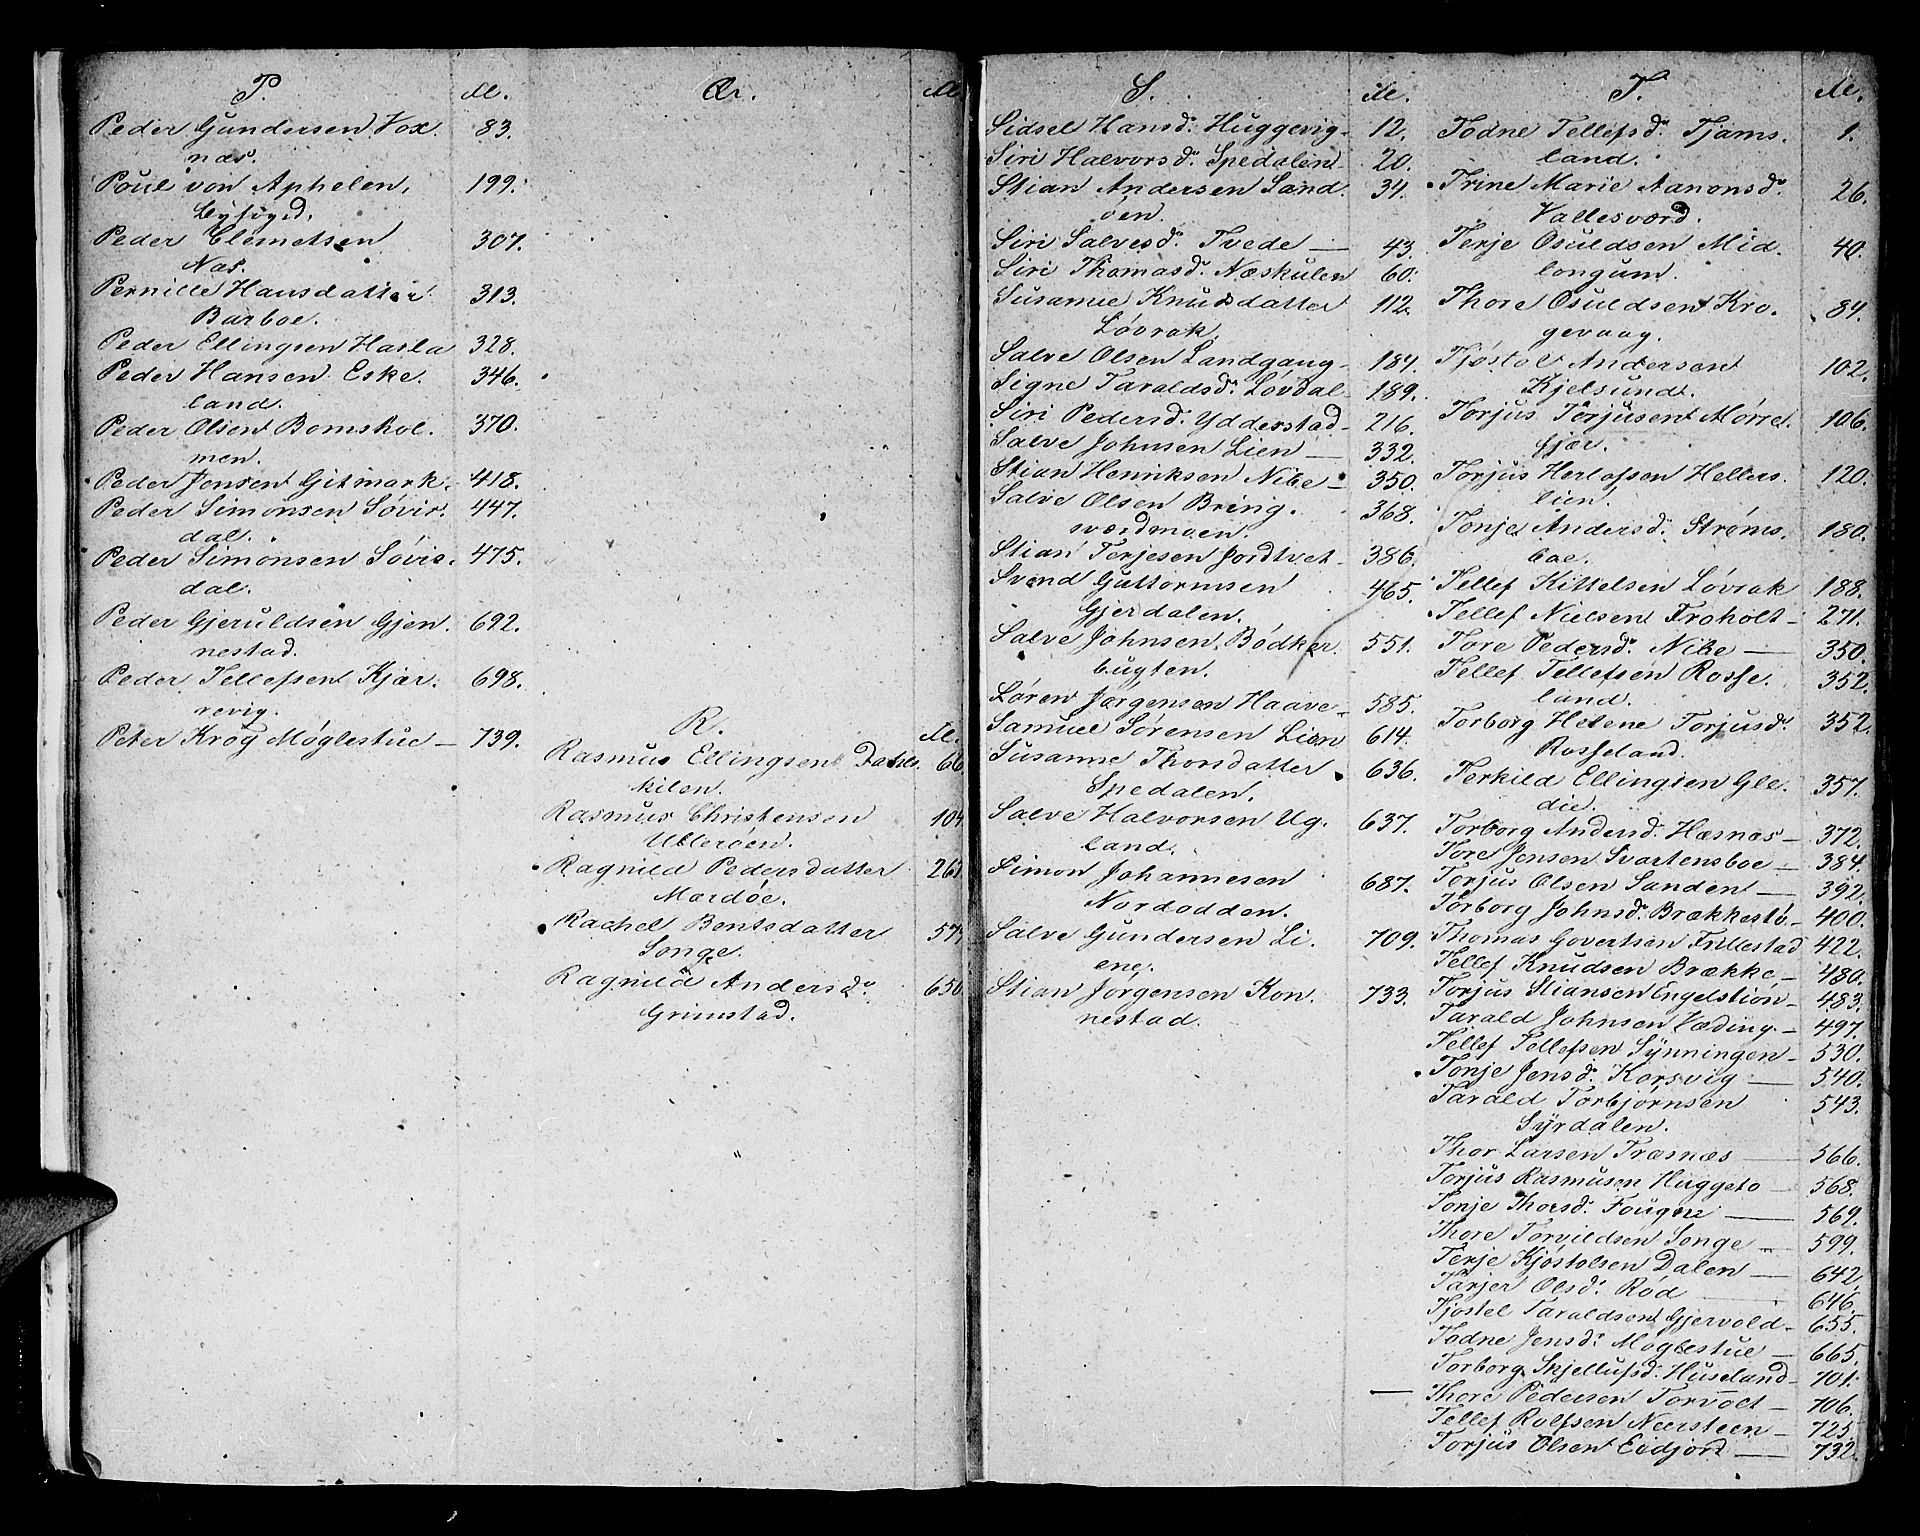 P.
Peder Gundersen Vox 83.
næs.
Poul von Aphelen, 199.
Byfogd.
Peder Clemetsen 307.
Næs.
Pernille Hansdatter 313.
Barboe.
Peder Ellingsen Hasla 328.
Peder Hansen Eske. 346.
land.
Peder Olsen Bomshol. 370.
men.
Peder Jensen Gitmark. 418.
Peder Simonsen Søvir. 447.
dal.
Peder Simonsen Søvis. 475.
dal.
Peder Gjeruldsen Gjen 692.
nestad.
Peder Tellefsen Kjær. 698.
revig.
Peter Krog Møglestue — 739.
Qu.
R.
Rasmus Ellingsen 66
kilen.
Rasmus Christensen 104
Ulleröen.
Ragnild Pedersdatter 261
Mærdöe.
Rachel Bentsdatter 57
Songe.
Ragnild Andersd. 650
Grimstad.
S.
Sidsel Hansd. Huggevig 12.
Siri Halvorsd. Spedalen 20.
Stian Andersen Sand 34.
öen.
Siri Salvesd. Tvede — 43.
Siri Thomasd. Næskulen 60.
Susanne Knudsdatter 112.
Løvrak.
Salve Olsen Landgang 184.
Signe Taraldsd. Løvdal 189.
Siri Pedersd. Ydderstad 216.
Salve Johnsen Lien — 332.
Stian Henriksen Nibe — 350.
Salve Olsen Bring. 368.
sværdmoen.
Stian Terjesen Jordtvet 386.
Svend Guttormsen 465.
Gjerdalen.
Salve Johnsen Bødker 551.
bugten.
Søren Jørgensen Haave 585.
Samuel Sørensen Lien 614.
Susanne Thorsdatter 636.
Spedalen.
Salve Halvorsen Ug. 637.
land.
Simon Johannesen 687.
Nordodden.
Salve Gundersen Li. 709.
ene.
Stian Jørgensen Kon 733.
nestad.
T.
Todne Tellefsd. Tjams 1.
land.
Trine Marie Aanonsd. 26.
Vallesværd.
Terje Osuldsen Mid 40.
longum.
Thore Osuldsen Kro. 84.
gevaag.
Tjøstol Andersen 102.
Kjelsund.
Torjus Torjusen Mørre 106.
fjær.
Torjus Herlofsen Hellers 120.
lien.
Tonje Andersd. Strøms. 180.
boe.
Tellef Kittelsen Løvrak 188.
Tellef Nielsen Froholt — 271.
Tore Pedersd. Nibe — 350.
Tellef Tellefsen Rosse. 352.
land.
Torborg Helene Torjusd. 352.
Rosseland.
Terkild Ellingsen Gle. 357.
die.
Torborg Andersd. Hæsnæs — 372.
Tore Jensen Svartensboe — 384.
Torjus Olsen Sanden — 392.
Torborg Johnsd. Brækkestö — 400.
Thomas Govertsen Fillestad 422.
Tellef Knudsen Brække — 480.
Torjus Stiansen Engelstiön — 483.
Tarald Johnsen Væding. — 497.
Tellef Tellefsen Synningen — 530.
Tonje Jensd. Korsvig — 540.
Tarald Torbjørnsen 543.
Syrdalen.
Thor Larsen Træsnæs — 566.
Torjus Rasmusen Huggeto — 568.
Tonje Thorsd. — 569.
Thore Torvildsen Songe — 599.
Terje Kjøstolsen Dalen — 642.
Tarjer Olsd. Rød 646.
Tjøstel Taraldsen Gjervold — 655.
Todne Jensd. Møglestue — 665.
Torborg Skjellufsd. Huseland — 701.
Thore Pedersen — 706.
Tellef Rolfsen Neersteen — 725.
Torjus Olsen Eidjord — 732.